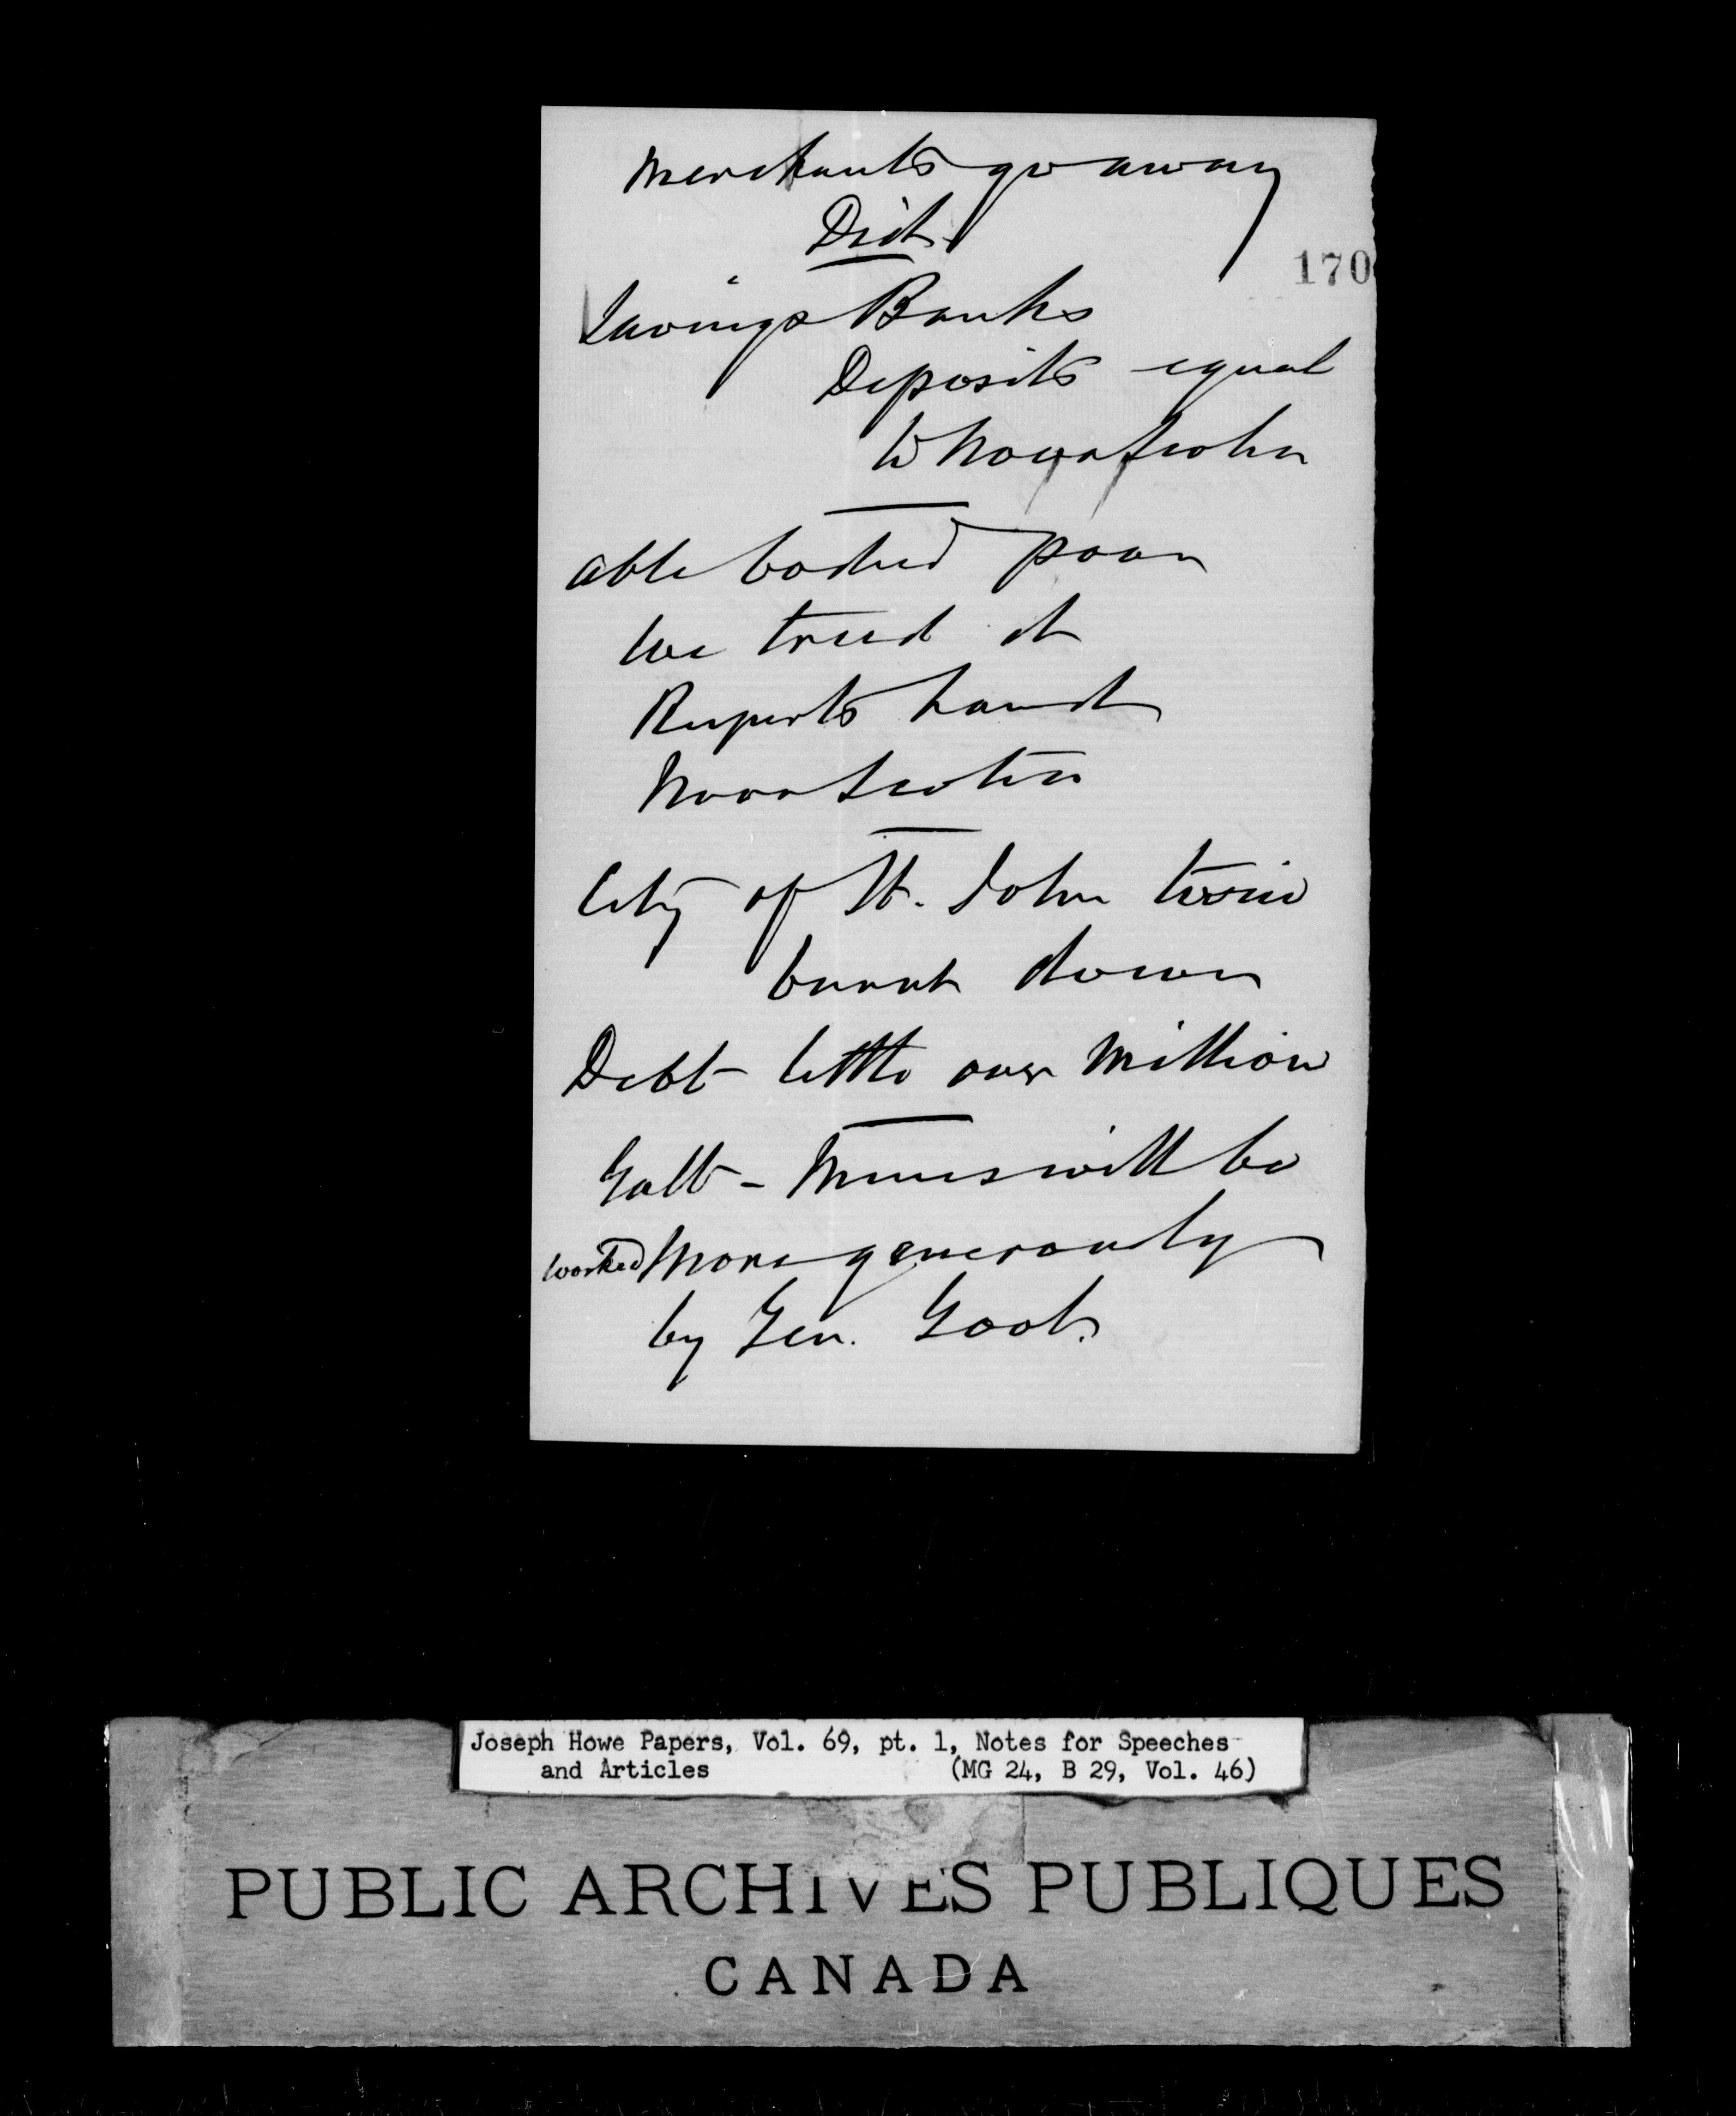 Merchants go away
Did
170
Savings Banks
Deposits equal
to Nova Scotia
able bodied poor
We tried it
Ruperts Land
Nova Scotia
City of St. John twice
burnt down
Debt little over Million
Galt - Mines will be
worked More generously
by Gen. Govt.
Joseph Howe Papers, Vol. 69, pt. 1, Notes for Speeches
and Articles (MG 24, B 29, Vol. 46)
PUBLIC ARCHIVES PUBLIQUES
CANADA